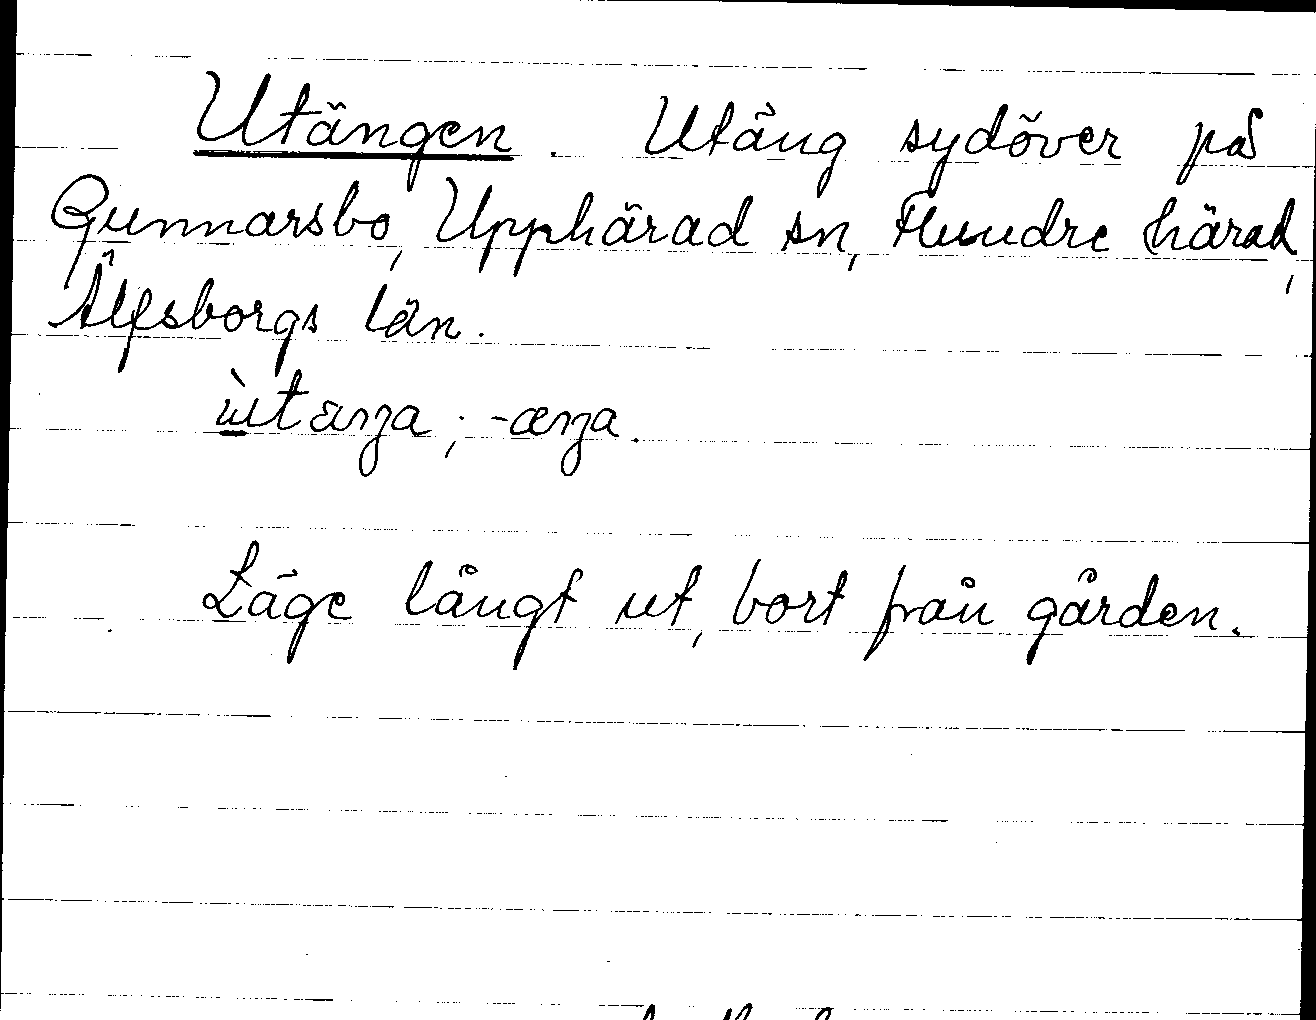 Utängen. Utäng sydöver på
Gunnarsbo, Upphärad sn, Flundre härad,
Älfsborgs län.
ùtæŋa; -œŋa.
Läge långt ut, bort från gården.